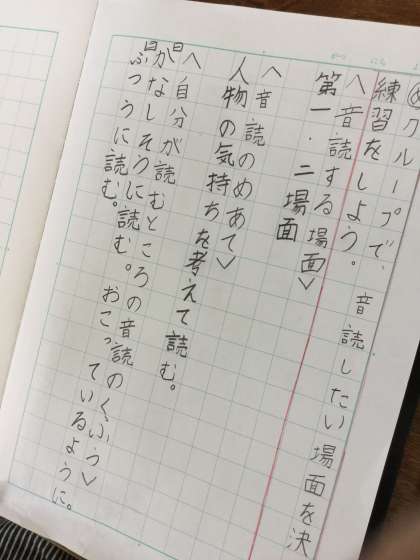 グループで、音読したい場面を決
練習をしよう。
〈音読する場面〉
第一・二場面
〈音読のめあて〉
人物の気持ちを考えて読む。
〈自分が読むところの音読のくふう〉
かなしそうに読む。おこっているように。
ふつうに読む。